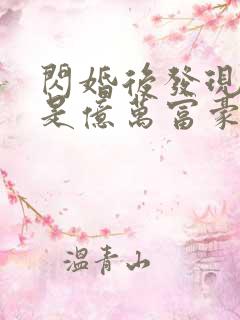 閃婚後發現
是億萬富豪
溫青山